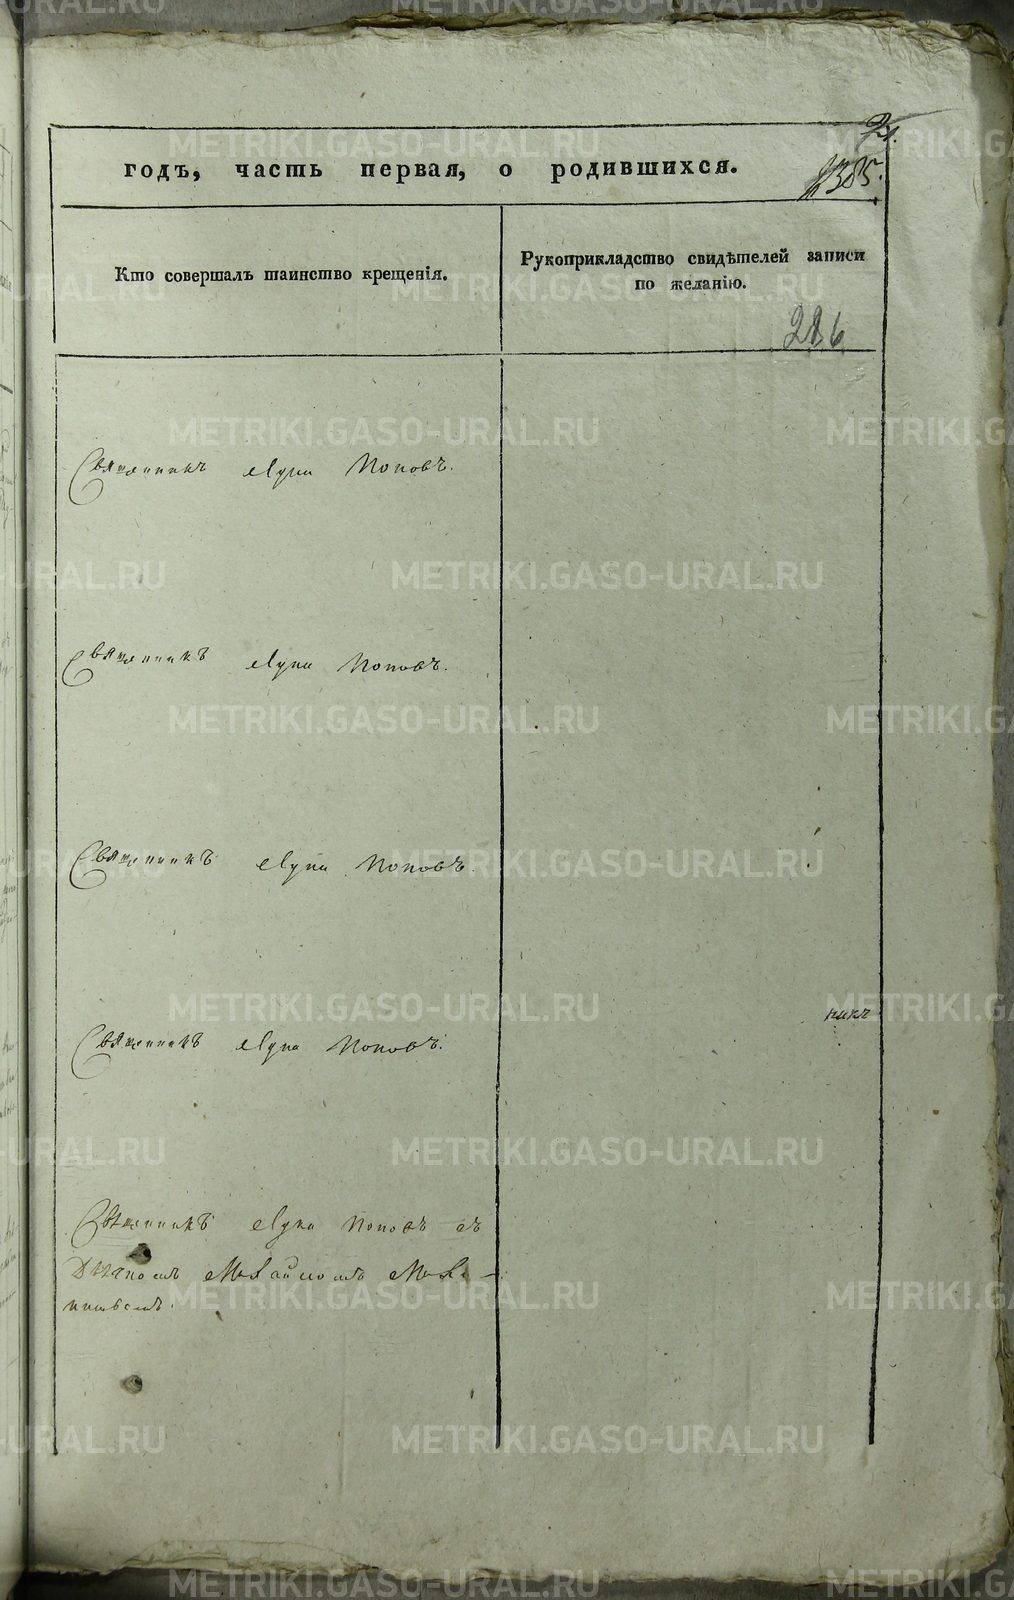 21.
годъ, часть первая, о родившихся.
385.
Кто совершалъ таинство крещенія.
Рукоприкладство свидѣтелей записи
по желанію.
286
Священникъ Лука Поповъ.
Священникъ Лука Поповъ.
Священникъ Лука Поповъ.
Священникъ Лука Поповъ.
Священникъ Лука Поповъ съ
Дьячкомъ Михаиломъ
METRIKI.GASO-URAL.RU